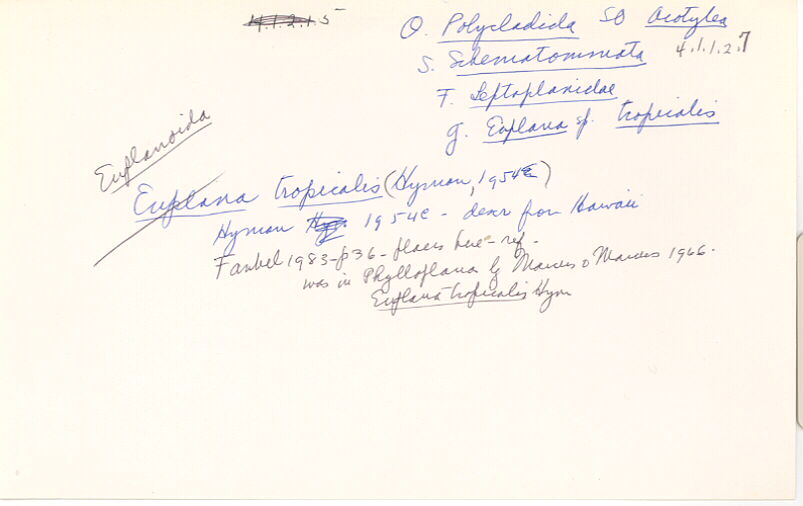 4.1.2.1.5
O. Polycladida SO Acotylea
S. Schematommata 4.1.1.2.7
F. Leptoplanidae
G. Euplana sp. tropicalis
Euplanoida
Euplana tropicalis (Hyman, 1954c)
Hyman Hy 1954c - descr from Hawaii
Faubel 1983-p36 - places here - ref -
was in Phylloplana by Marcus & Marcus 1966.
Euplana tropicalis Hym